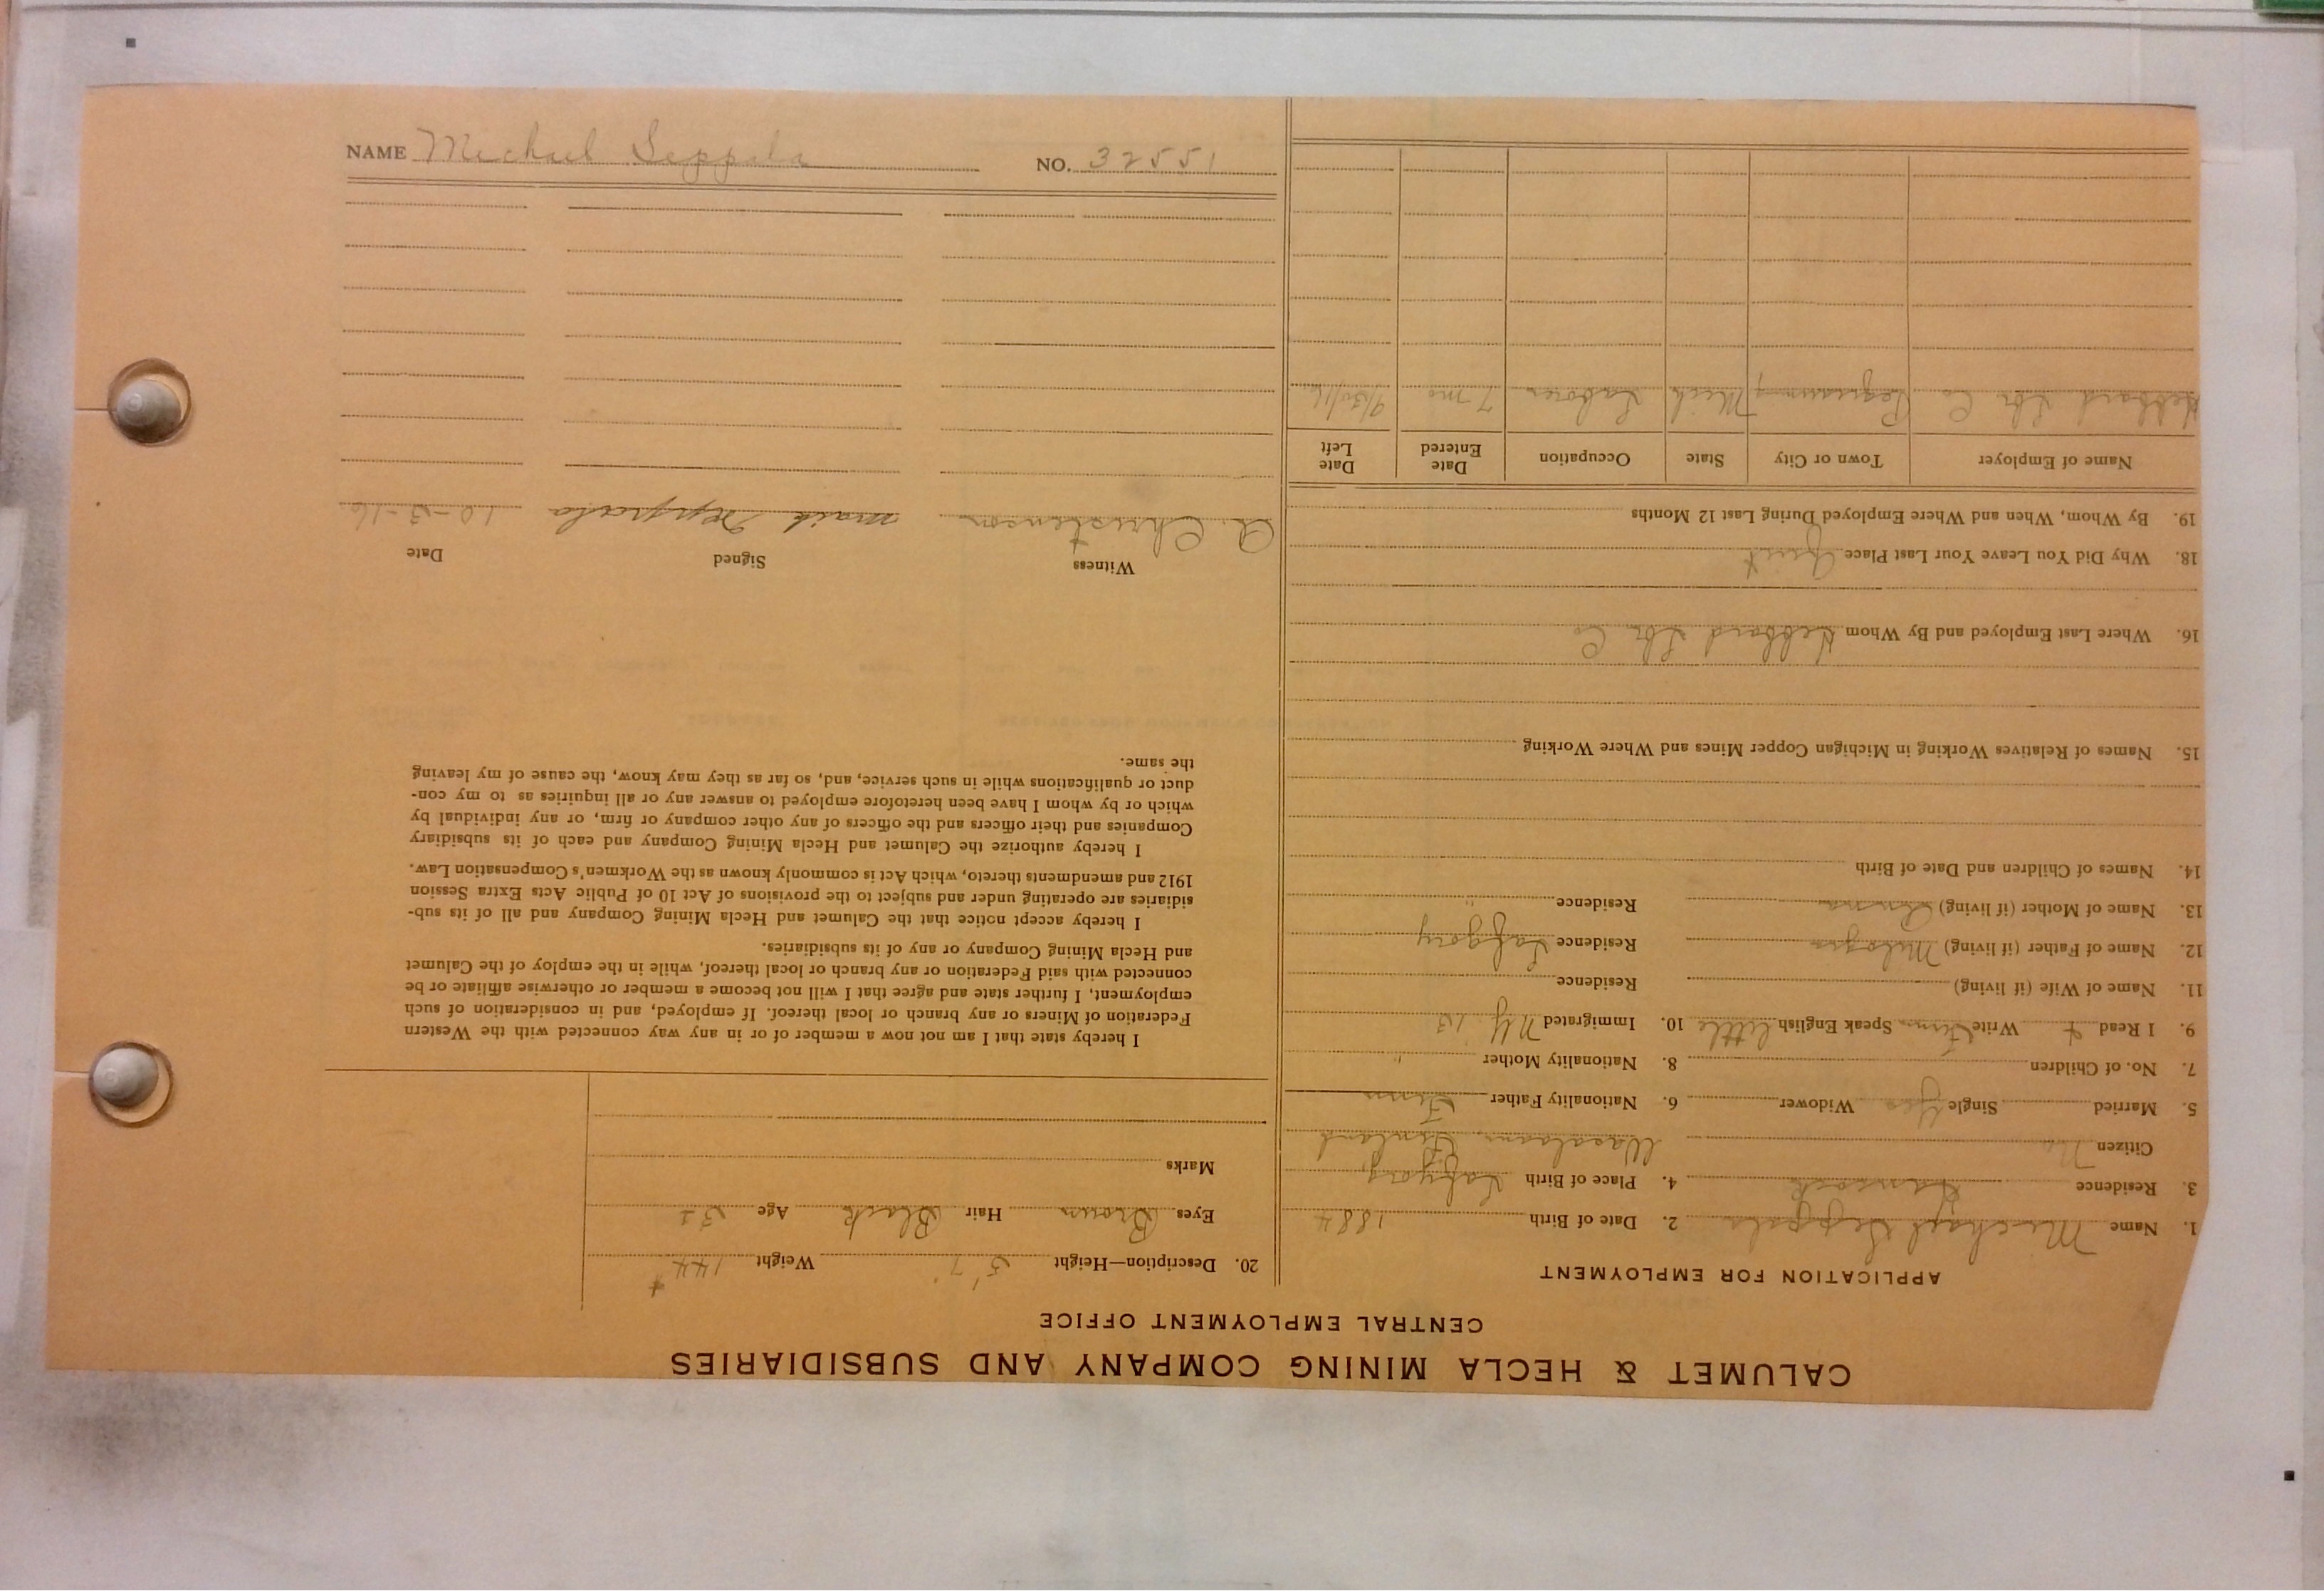 CALUMET & HECLA MINING COMPANY AND SUBSIDIARIES
CENTRAL EMPLOYMENT OFFICE
APPLICATION FOR EMPLOYMENT
1. Name Michael Seppala 2. Date of Birth 1884
3. Residence Hancock 4. Place of Birth
Citizen No Finland
5. Married Single Yes Widower 6. Nationality Father Finn
7. No. of Children 8. Nationality Mother "
9. I Read & Write Finn Speak English little 10. Immigrated NY
11. Name of Wife (if living) Residence
12. Name of Father (if living) Residence
13. Name of Mother (if living) Residence "
14. Names of Children and Date of Birth
15. Names of Relatives Working in Michigan Copper Mines and Where Working
16. Where Last Employed and By Whom Hebbard Lbr Co
18. Why Did You Leave Your Last Place Quit
19. By Whom, When and Where Employed During Last 12 Months
Name of Employer Town or City State Occupation Date Entered Date Left
Hebbard Lbr Co Pequaming Mich Laborer 7 mo 9/30/16
20. Description—Height 5' 7" Weight 144 #
Eyes Brown Hair Black Age 32
Marks
I hereby state that I am not now a member of or in any way connected with the Western
Federation of Miners or any branch or local thereof. If employed, and in consideration of such
employment, I further state and agree that I will not become a member or otherwise affiliate or be
connected with said Federation or any branch or local thereof, while in the employ of the Calumet
and Hecla Mining Company or any of its subsidiaries.
I hereby accept notice that the Calumet and Hecla Mining Company and all of its sub-
sidiaries are operating under and subject to the provisions of Act 10 of Public Acts Extra Session
1912 and amendments thereto, which Act is commonly known as the Workmen's Compensation Law.
I hereby authorize the Calumet and Hecla Mining Company and each of its subsidiary
Companies and their officers and the officers of any other company or firm, or any individual by
which or by whom I have been heretofore employed to answer any or all inquiries as to my con-
duct or qualifications while in such service, and, so far as they may know, the cause of my leaving
the same.
Witness Signed Date
A. Christensen 10-3-16
NAME Michael Seppala NO. 32551